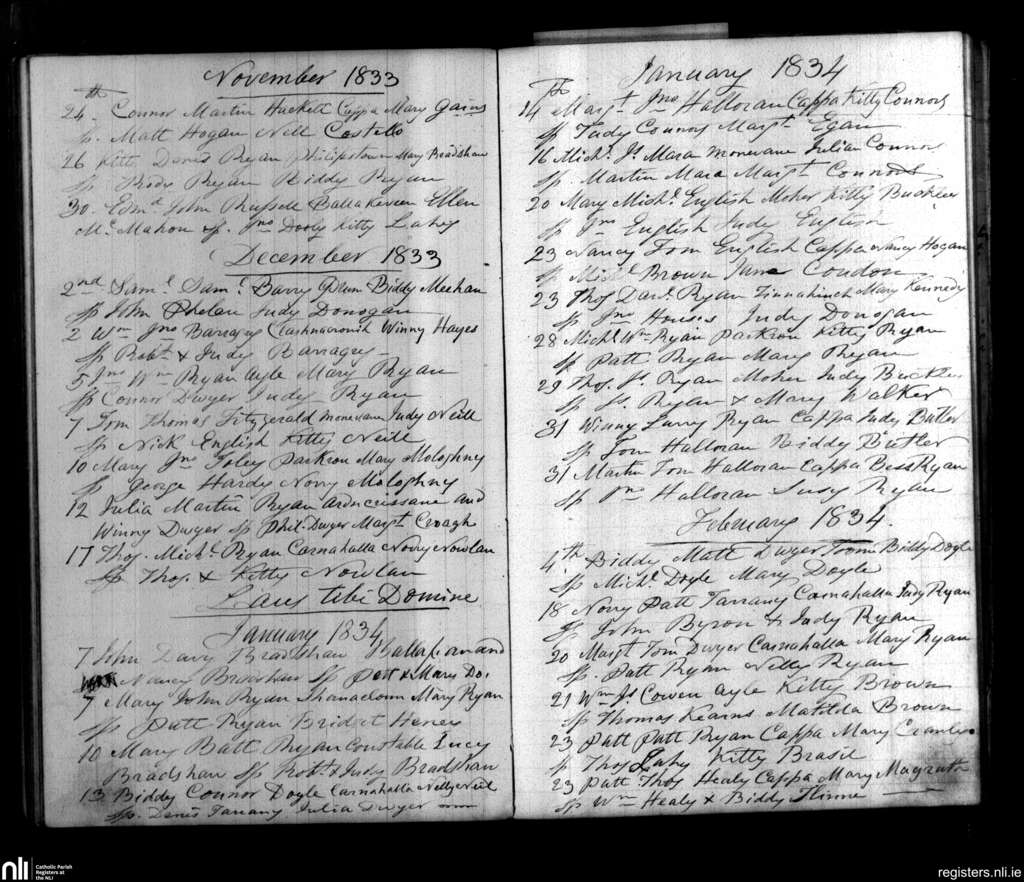 November 1833
th
24. Connor Martin Hackett Cappa Mary Gains
Sp. Matt Hogan Nell Costello
26 Kitt Denis Ryan Philipstown Mary Bradshaw
Sp Ryan Biddy Ryan
30. Edmd John Russell Ballakeveen Ellen
Mc Mahon Sp. Jno Dooly Kitty Lahy
December 1833
2nd Saml Saml Barry Glun Biddy Meehan
Sp John Phelan Judy Donogan
2 Wm Jno Barragry Clashnacronih Winny Hayes
Sp Robt & Judy Barragry
5 Jno Wm Ryan ayle Mary Ryan
Sp Connor Dwyer Judy Ryan
7 Tom Thomas Fitzgerald monevane Judy Neill
Sp Nick English Kitty Neill
10 Mary Jno Foley Parkron Mary Mologhny
Sp George Hardy Norry Mologhny
12 Julia Martin Ryan and
Winny Dwyer Sp Phil. Dwyer Margt Croagh
17 Thos. Michl Ryan Carnahalla Norry Nowlan
Sp Thos. & Kitty Nowlan
Laus tibi Domine
January 1834
7 John Davy Bradshaw and
Nancy Bradshaw Sp Patt & Mary Do.
7 Mary John Ryan Shanacloon Mary Ryan
Sp Patt Ryan Bridget Heney
10 Mary Batt Ryan Constable Lucy
Bradshaw Sp Robt & Judy Bradshaw
13 Biddy Connor Doyle Carnahalla Nelly Neil
Sp. Denis Tarrany Julia Dwyer
January 1834
th
14 Margt Jno Halloran Cappa Kitty Connors
Sp Tady Connors Margt Egan
16 Michl Js Mara monevane Julian Connors
Sp. Martin Mara Margt Connors
20 Mary Michl English Moher Kitty Buckley
Sp Jno English Judy English
23 Nancy Tom English Cappa Nancy Hogan
Sp Michl Brown Jane Condon
23 Thos Danl Ryan Finnahinch Mary Kennedy
Sp Jno Judy Donogan
28 Michl Wm Ryan Parkron Kitty Ryan
Sp Patt Ryan Mary Ryan
29 Thos. Js Ryan Moher Judy Buckley
Sp Js. Ryan & Mary Walker
31 Winny Larry Ryan Cappa Judy Butler
Sp Tom Halloran Biddy Butler
31 Martin Tom Halloran Cappa Bess Ryan
Sp Halloran Susy Ryan
February 1834.
4th Biddy Matt Dwyer Toom Biddy Doyle
Sp Michl Doyle Mary Doyle
18 Norry Patt Tarrany Carnahalla Judy Ryan
Sp John Byron & Judy Ryan
20 Margt Tom Dwyer Carnahalla Mary Ryan
Sp. Patt Ryan Nelly Ryan
21 Wm Js Cowen ayle Kitty Brown
Sp Thomas Kearns Matilda Brown
23 Patt Patt Ryan Cappa Mary
Sp Thos Lahy Kitty Brasil
23 Patt Thos Healy Cappa Mary Magrath
Sp Wm Healy & Biddy
nli Catholic Parish Registers at the NLI
registers.nli.ie